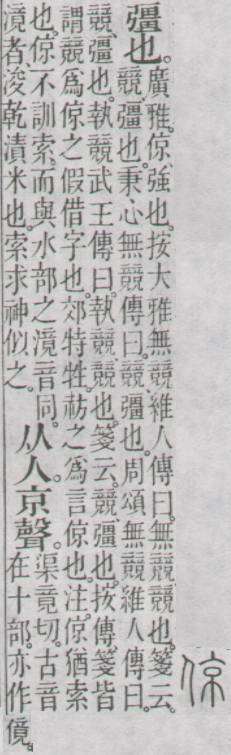 倞
彊也。廣雅。倞、強也。按大雅無競維人傳曰。無競競也。箋云。
競、彊也。秉心無競傳曰。競、彊也。周頌無競維人傳曰。
競、彊也。執競武王傳曰。執競、競也。箋云。競、彊也。按傳箋皆
謂競爲倞之假借字也。郊特牲。祊之爲言倞也。注。倞猶索
也。倞不訓索。而與水部之滰音同。
滰者、浚乾漬米也。索求神似之。
从人京聲。渠竟切。古音
在十部。亦作傹。